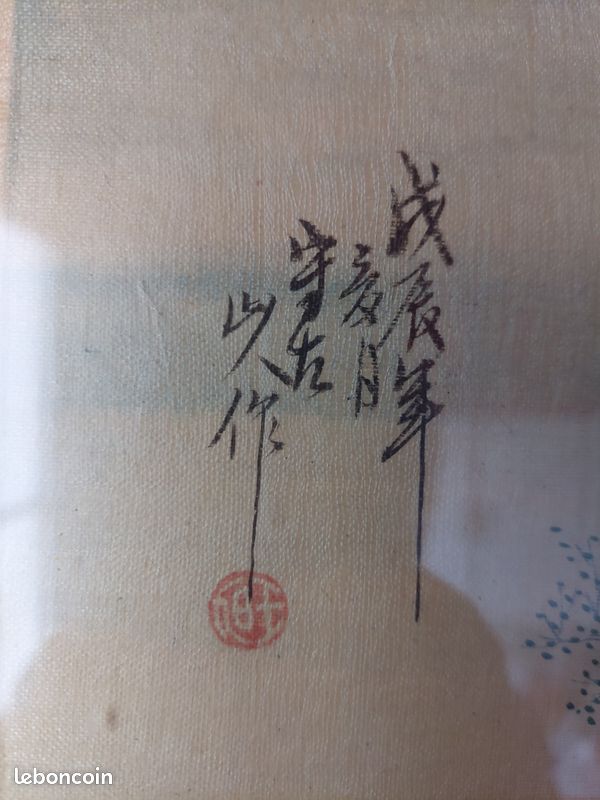 戊辰年
夏月
守古
山人作
leboncoin